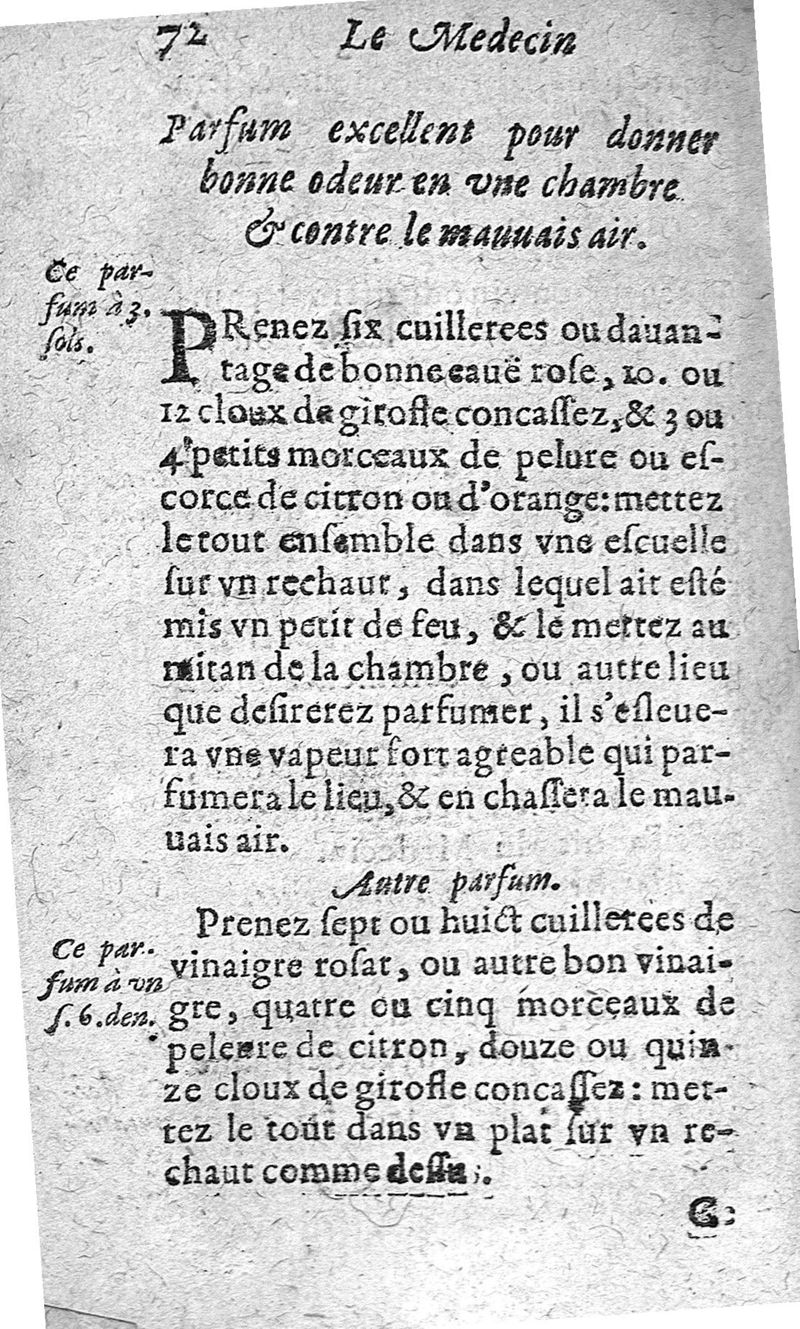 72 Le Medecin
Parfum excellent pour donner
bonne odeur en vne chambre
& contre le mauuais air.
Ce par-
fum à 3.
sols.
PRenez ſix cuillerees ou dauan-
tage de bonne eauë roſe, 10. ou
12 cloux de girofle concaſſez, & 3 ou
4 petits morceaux de pelure ou eſ-
corce de citron ou d'orange: mettez
le tout enſemble dans vne eſcuelle
ſur vn rechaut, dans lequel ait eſté
mis vn petit de feu, & le mettez au
mitan de la chambre, ou autre lieu
que deſirerez parfumer, il s'eſleue-
ra vne vapeur fort agreable qui par-
fumera le lieu, & en chaſſera le mau-
uais air.
Autre parfum.
Ce par-
fum à vn
ſ. 6. den.
Prenez ſept ou huict cuillerees de
vinaigre roſat, ou autre bon vinai-
gre, quatre ou cinq morceaux de
peleure de citron, douze ou quin-
ze cloux de girofle concaſſez: met-
tez le tout dans vn plat ſur vn re-
chaut comme deſſus.
G